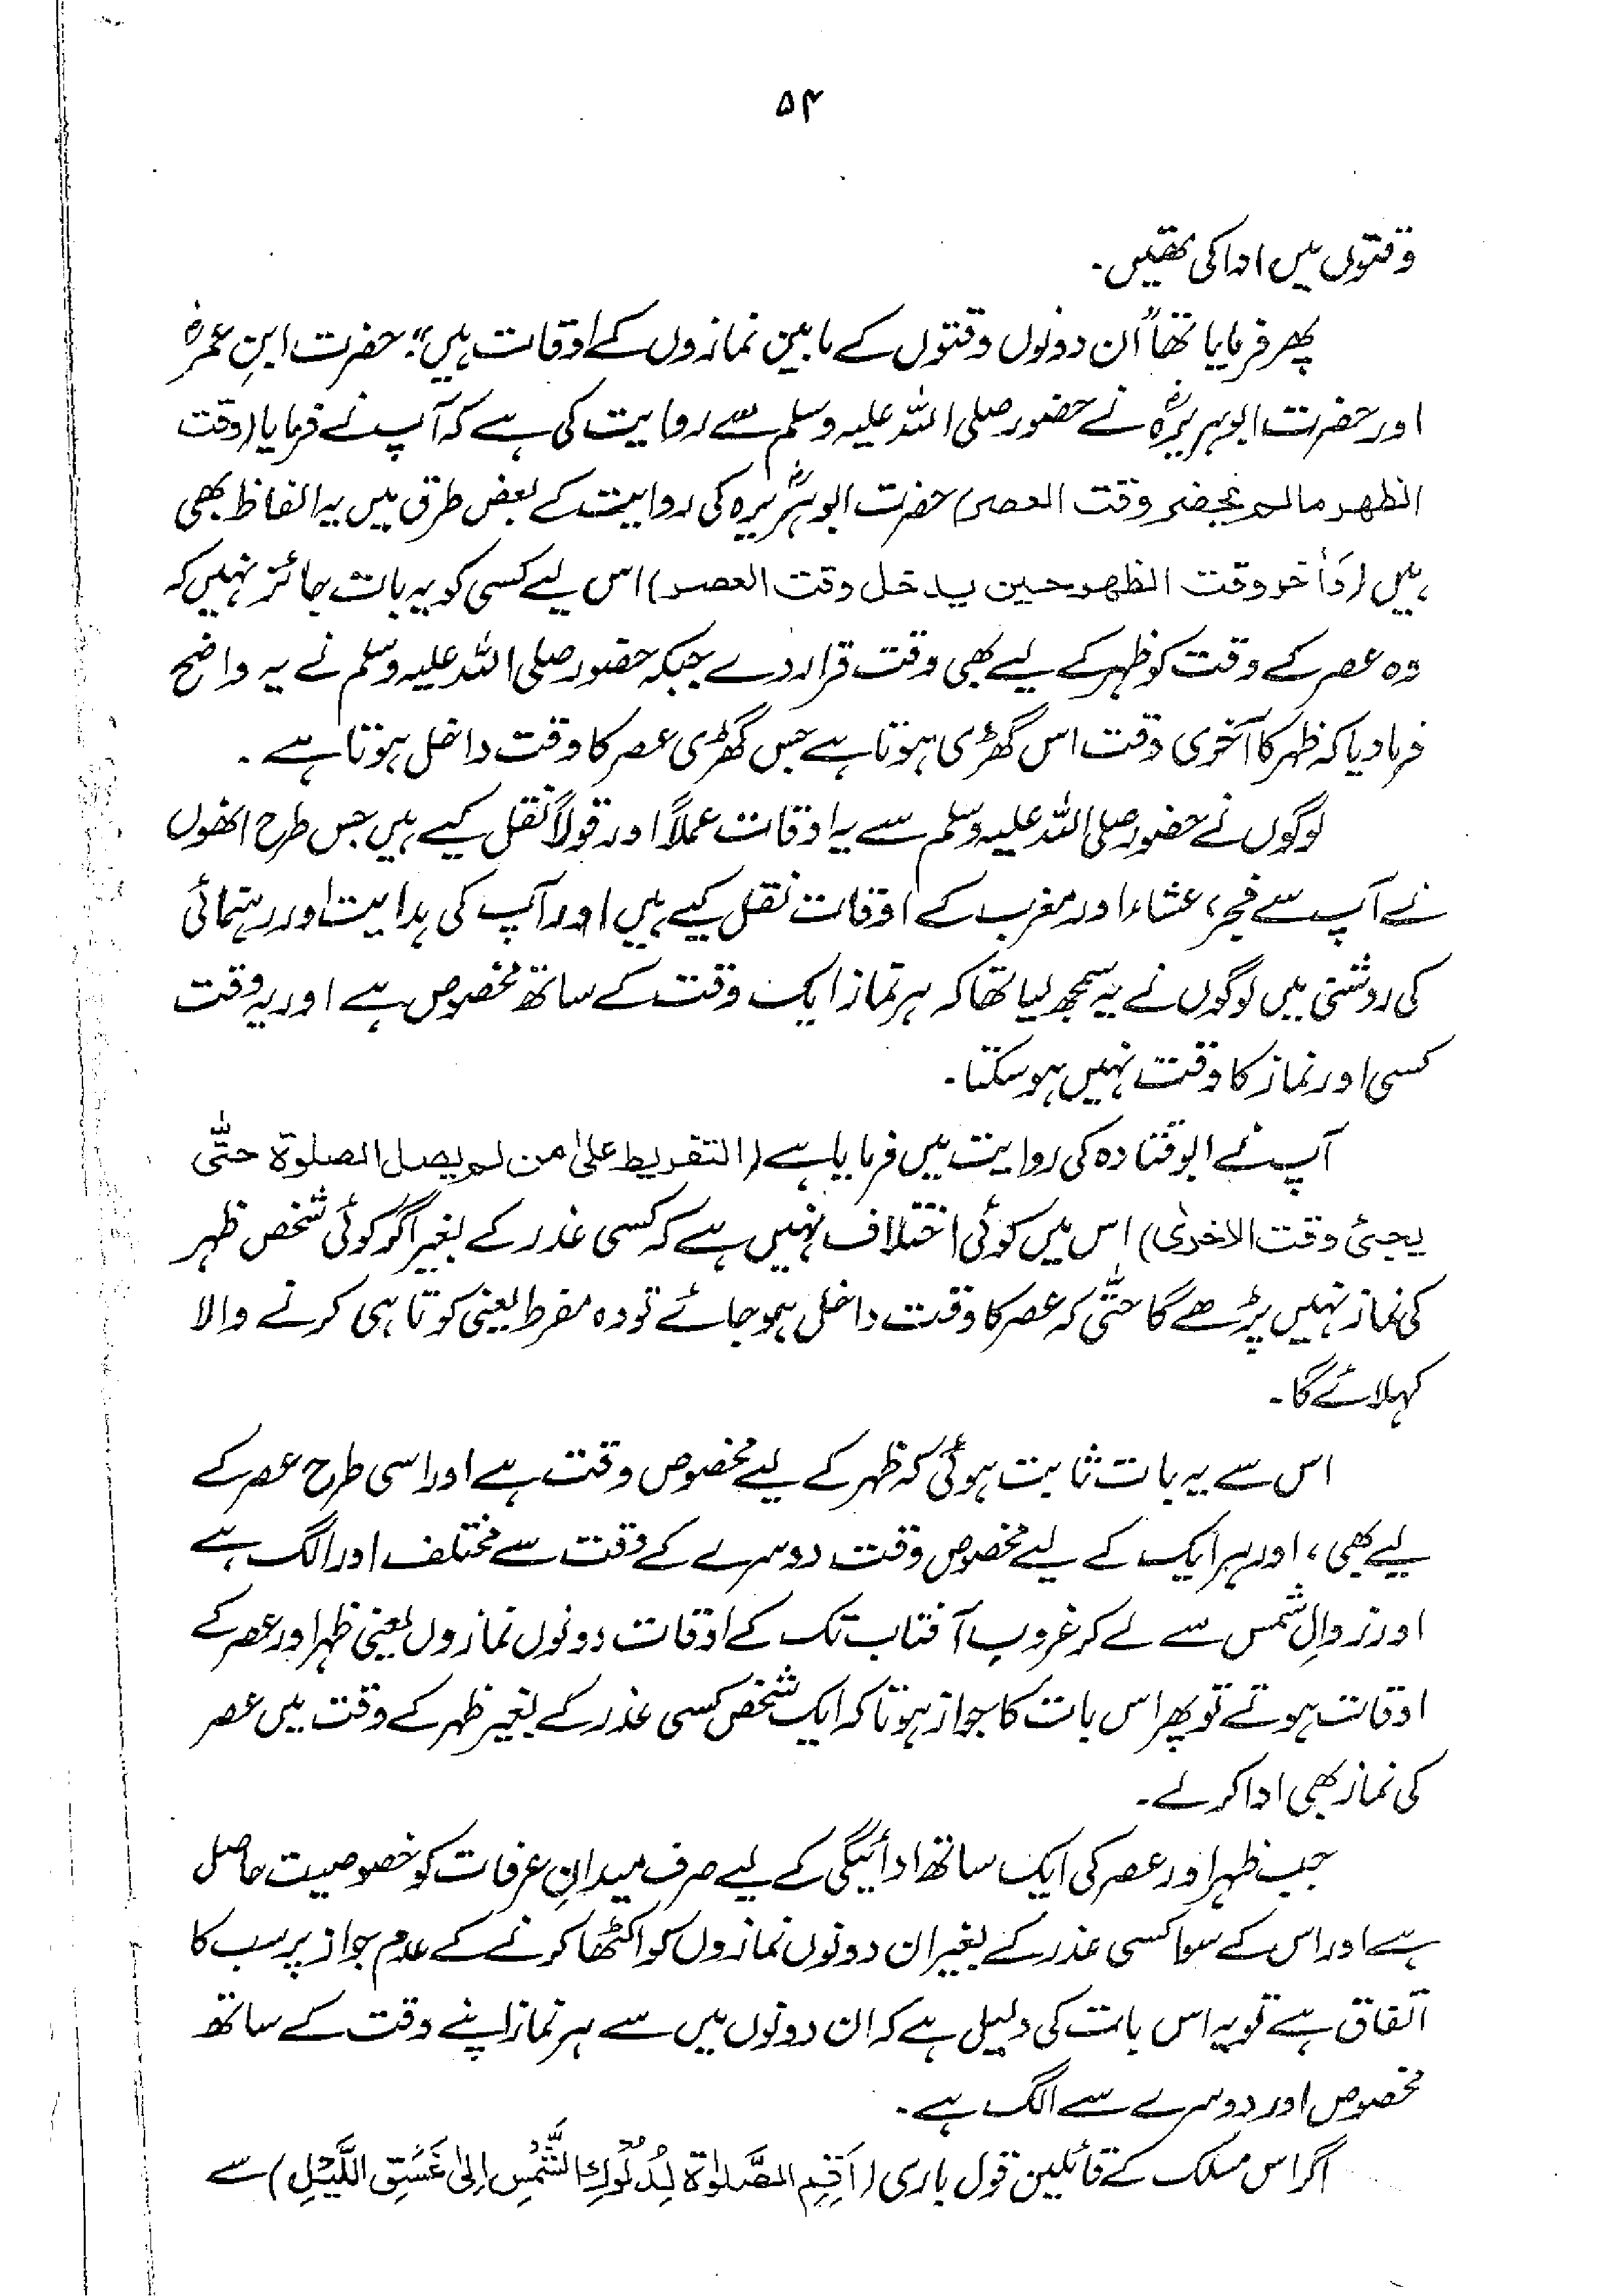 ۵۴
وقتوں میں ادا کی تھیں۔
پھر فرمایا تھا "ان دونوں وقتوں کے مابین نمازوں کے اوقات ہیں"۔ حضرت ابنِ عمرؓ
اور حضرت ابوہریرہؓ نے حضور صلی اللہ علیہ وسلم سے روایت کی ہے کہ آپ نے فرمایا (وقت
الظهر مالم يحضر وقت العصر) حضرت ابوہریرہؓ کی روایت کے بعض طرق میں یہ الفاظ بھی
ہیں (وَاٰخر وقت الظهر حين يدخل وقت العصر) اس لیے کسی کو یہ بات جائز نہیں کہ
وہ عصر کے وقت کو ظہر کے لیے بھی وقت قرار دے جبکہ حضور صلی اللہ علیہ وسلم نے یہ واضح
فرما دیا کہ ظہر کا آخری وقت اس گھڑی ہوتا ہے جس گھڑی عصر کا وقت داخل ہوتا ہے۔
لوگوں نے حضور صلی اللہ علیہ وسلم سے یہ اوقات عملاً اور قولاً نقل کیے ہیں جس طرح انھوں
نے آپ سے فجر، عشاء اور مغرب کے اوقات نقل کیے ہیں اور آپ کی ہدایت اور رہنمائی
کی روشنی میں لوگوں نے یہ سمجھ لیا تھا کہ ہر نماز ایک وقت کے ساتھ مخصوص ہے اور یہ وقت
کسی اور نماز کا وقت نہیں ہو سکتا۔
آپ نے ابوقتادہ کی روایت میں فرمایا ہے (التفريط علىٰ من لم يصل الصلوٰة حتّٰى
يجئ وقت الاخرىٰ) اس میں کوئی اختلاف نہیں ہے کہ کسی عذر کے بغیر اگر کوئی شخص ظہر
کی نماز نہیں پڑھے گا حتّٰی کہ عصر کا وقت داخل ہو جائے تو وہ مفرط یعنی کوتاہی کرنے والا
کہلائے گا۔
اس سے یہ بات ثابت ہو گئی کہ ظہر کے لیے مخصوص وقت ہے اور اسی طرح عصر کے
لیے بھی، اور ہر ایک کے لیے مخصوص وقت دوسرے کے وقت سے مختلف اور الگ ہے
اور زوالِ شمس سے لے کر غروبِ آفتاب تک کے اوقات دونوں نمازوں یعنی ظہر اور عصر کے
اوقات ہوتے تو پھر اس بات کا جواز ہوتا کہ ایک شخص کسی عذر کے بغیر ظہر کے وقت میں عصر
کی نماز بھی ادا کر لے۔
جب ظہر اور عصر کی ایک ساتھ ادائیگی کے لیے صرف میدانِ عرفات کو خصوصیت حاصل
ہے اور اس کے سوا کسی عذر کے بغیر ان دونوں نمازوں کو اکٹھا کرنے کے عدمِ جواز پر سب کا
اتفاق ہے تو یہ اس بات کی دلیل ہے کہ ان دونوں میں سے ہر نماز اپنے وقت کے ساتھ
مخصوص اور دوسرے سے الگ ہے۔
اگر اس مسلک کے قائلین قول باری (اَقِمِ الصَّلوٰةَ لِدُلُوْكِ الشَّمْسِ اِلىٰ غَسَقِ اللَّيْلِ) سے